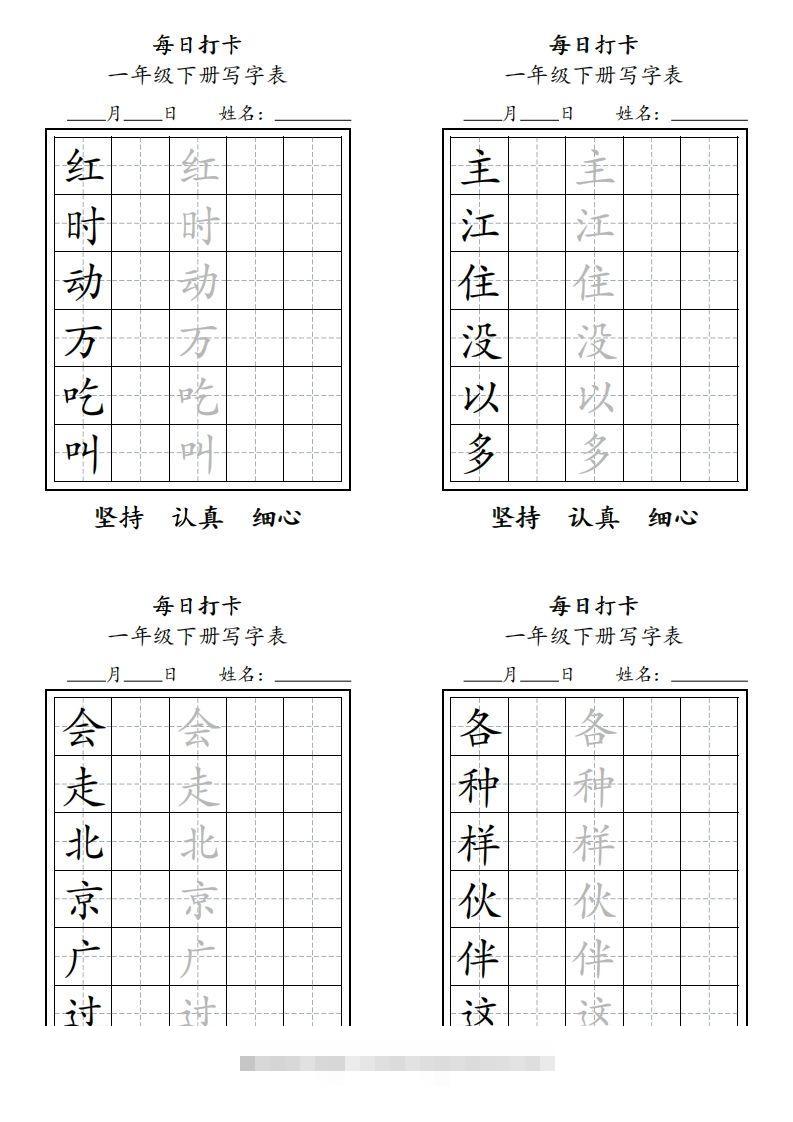 每日打卡
一年级下册写字表
____月____日 姓名：________
红 红
时 时
动 动
万 万
吃 吃
叫 叫
坚持 认真 细心
每日打卡
一年级下册写字表
____月____日 姓名：________
主 主
江 江
住 住
没 没
以 以
多 多
坚持 认真 细心
每日打卡
一年级下册写字表
____月____日 姓名：________
会 会
走 走
北 北
京 京
广 广
过 过
每日打卡
一年级下册写字表
____月____日 姓名：________
各 各
种 种
样 样
伙 伙
伴 伴
这 这